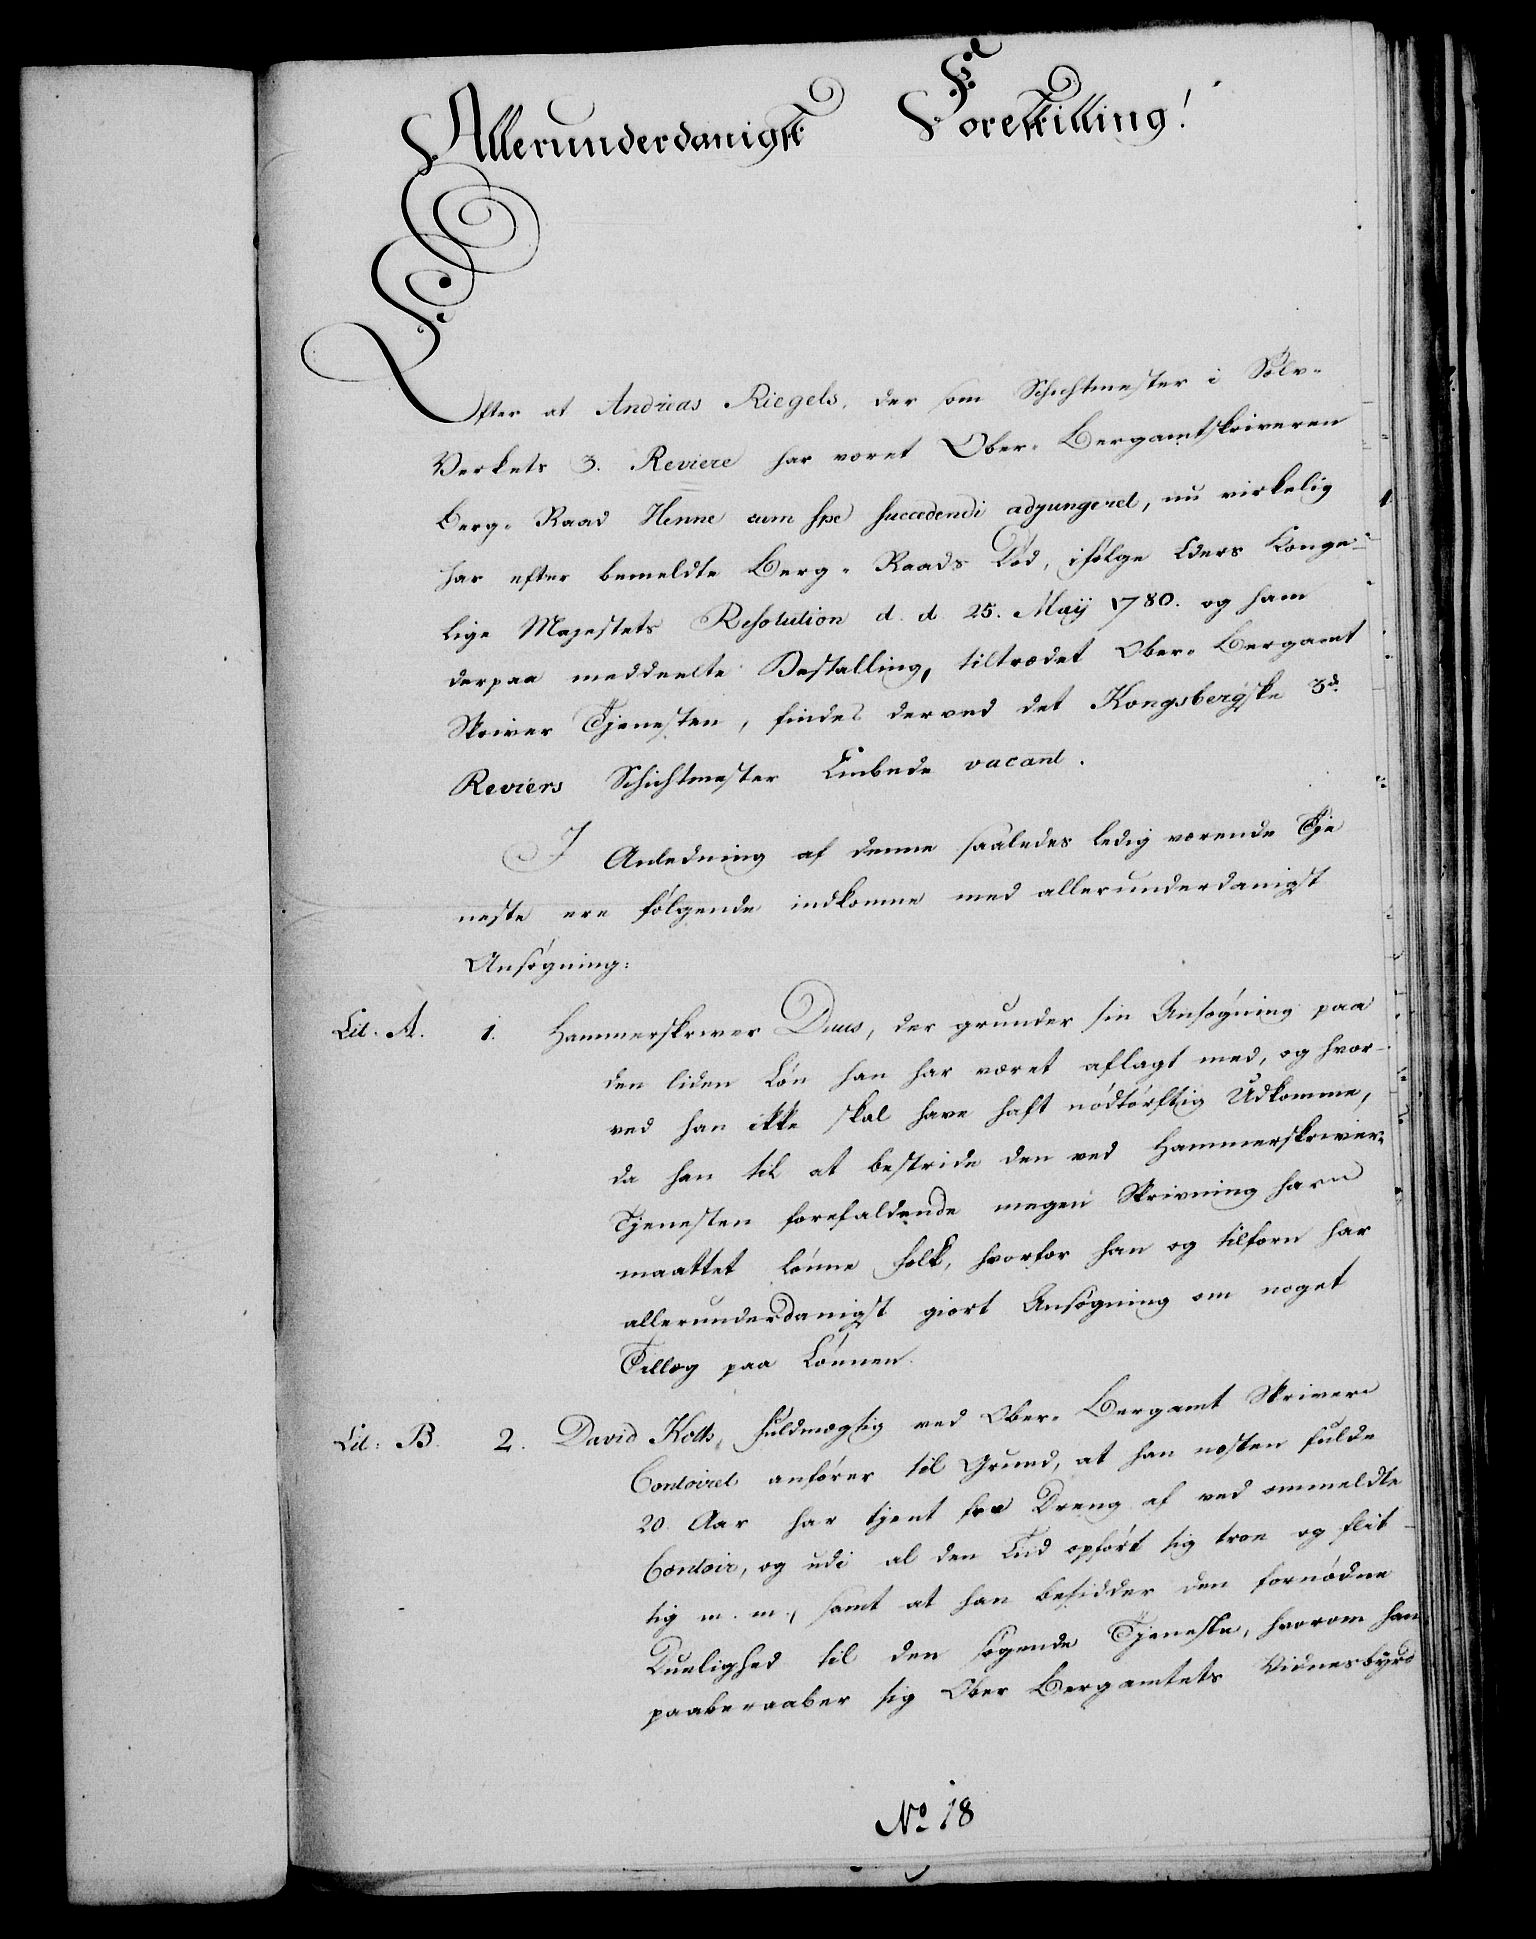 Allerunderdanigst Forestilling!
Efter at Andreas Riegels, der som Schichtmester i Sølv-
Verkets 3. Reviere har været Ober-Bergamtskriveren
Berg-Raad Henne cum spe succedendi adjungeret, nu virkelig
har efter bemeldte Berg-Raads Død, ifølge Eders Konge-
lige Majestets Resolution d. d. 25. Maij 1780. og ham
derpaa meddeelte Bestalling, tiltrædet Ober-Bergamt
Skriver Tjenesten, findes derved det Kongsbergske 3de
Reviers Schichtmester Embede vacant.
I Anledning af denne saaledes ledig værende Tje
neste ere følgende indkomne med allerunderdanigst
Ansøgning:
Lit. A. 1. Hammerskriver Duus, der grunder sin Ansøgning paa
den liden Løn han har været aflagt med, og hvor-
ved han ikke skal have haft nødtørftig Udkomme,
da han til at bestride den ved Hammerskriver-
Tjenesten forefaldende megen Skrivning have
maattet lønne Folk, hvorfor han og tilforn har
allerunderdanigst giort Ansøgning om noget
Tillæg paa Lønnen.
Lit: B. 2. David Koth, Fuldmægtig ved Ober-Bergamt Skriver
Contoiret anfører til Grund, at han næsten fulde
20 Aar har tjent fra Dreng af ved ommeldte
Contoir, og udi al den Tid opført sig troe og flit-
tig m. m., samt at han besidder den fornødne
Duelighed til den søgende Tjeneste, hvorom han
paaberaaber sig Ober Bergamtets Vidnesbyrd
No 18